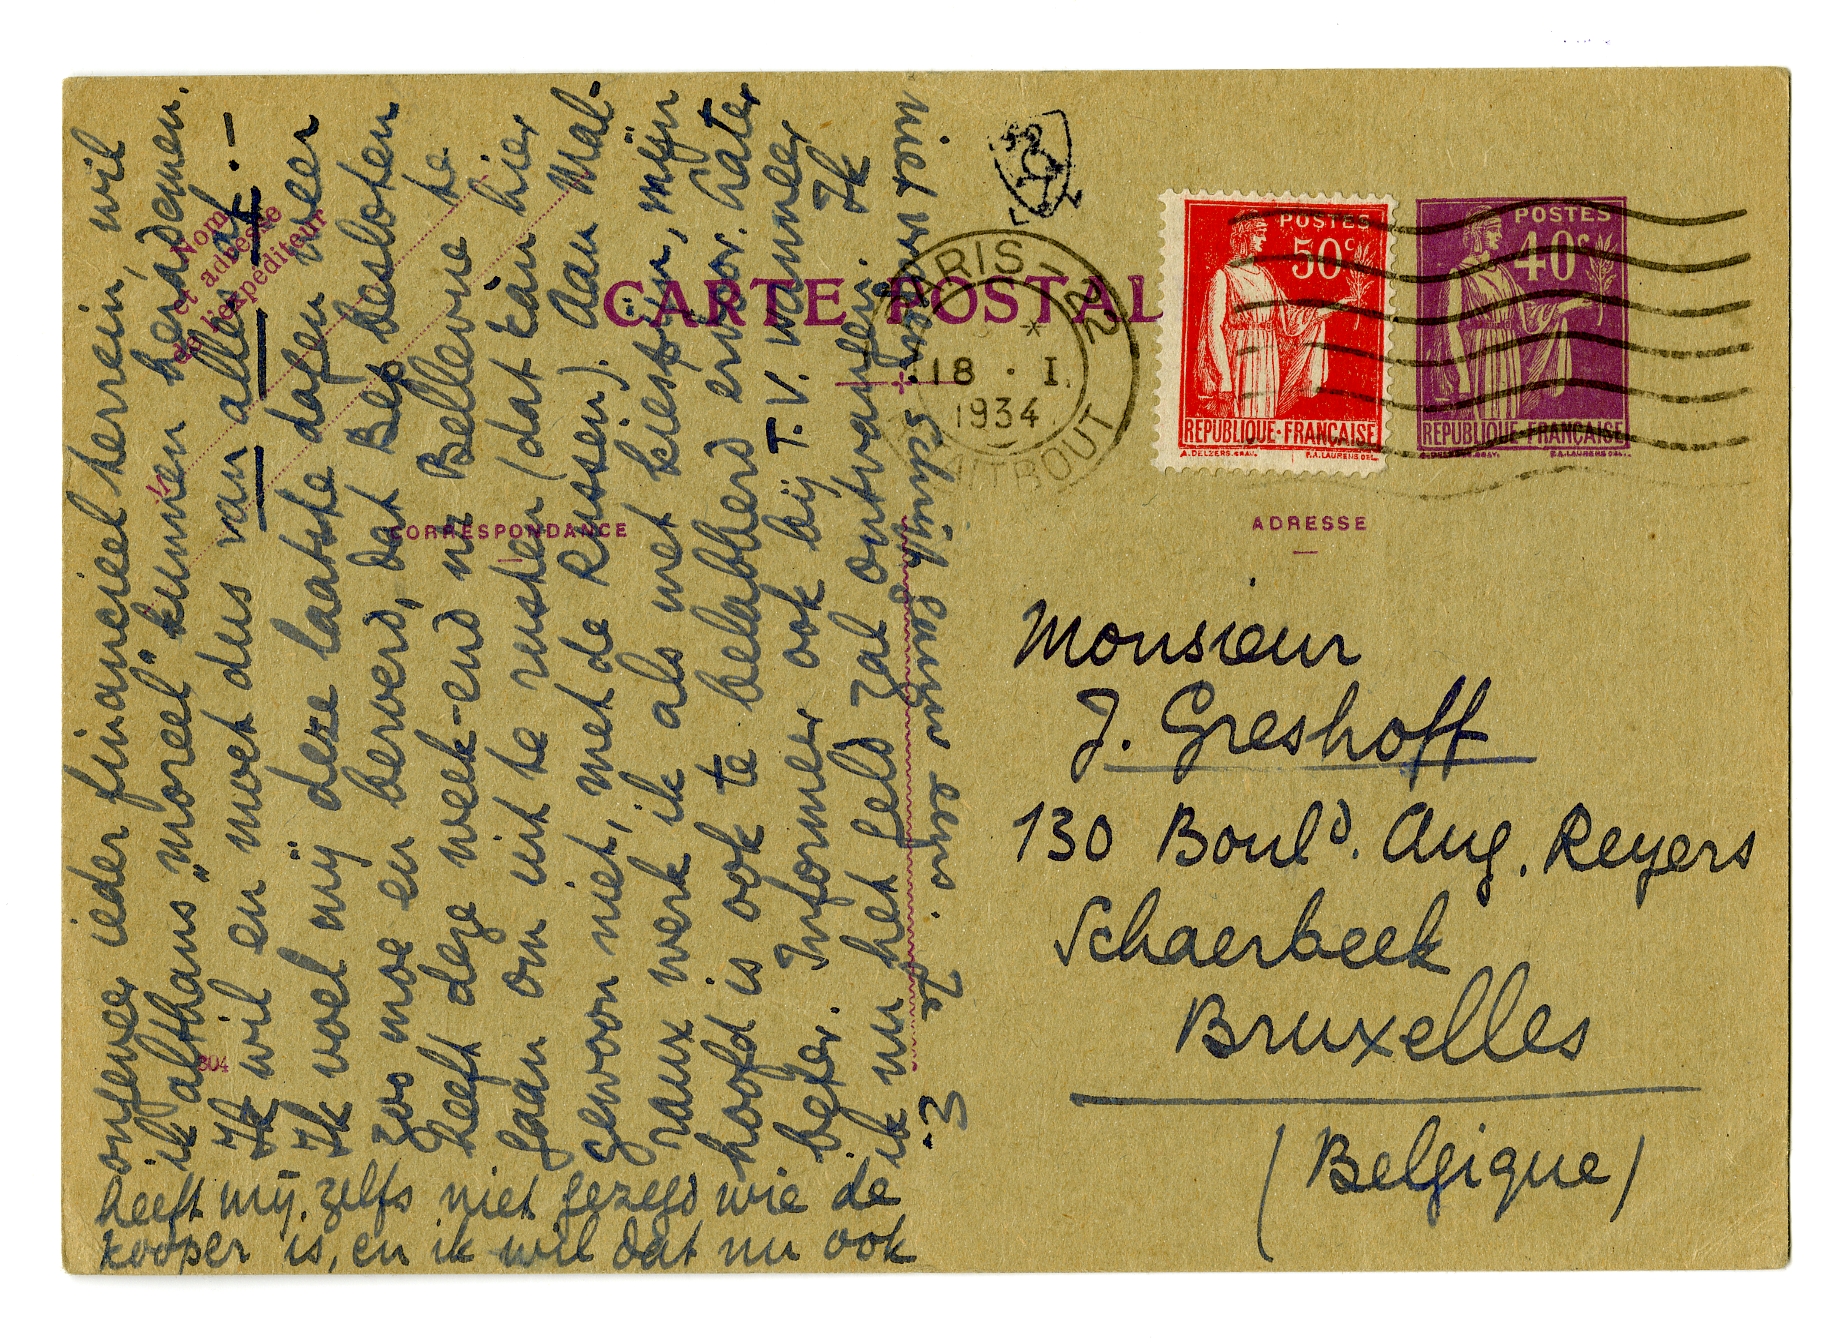 ongeveer ieder financieel terrein, wil
ik althans „moreel" kunnen herademen.
Ik wil en moet dus van alles af. —
Ik voel mij deze laatste dagen weer
zoo moe en beroerd, dat Bep besloten
heeft deze week-end naar Bellevue te
gaan om uit te rusten (dat kàn hier
gewoon niet, met de Russen). Aan Mal-
raux werk ik als met kiespijn, mijn
hoofd is ook te belabberd ervoor. Later
beter. Informeer ook bij T.V. wanneer
ik nu het geld zal ontvangen. Ik
heeft mij zelfs niet gezegd wie de
kooper is, en ik wil dat nu ook
niet vragen. Schrijf jij eens. Je
E.
Nom
et adresse
de l'expéditeur
CARTE POSTALE
CORRESPONDANCE
304
PARIS - 22
*
18 · I.
1934
R. TAITBOUT
POSTES
50c
REPUBLIQUE·FRANÇAISE
A. DELZERS. GRAV. P.A. LAURENS DEL.
POSTES
40c
REPUBLIQUE FRANÇAISE
P.A. LAURENS DEL.
ADRESSE
Monsieur
J. Greshoff
130 Bould. Aug. Reyers
Schaerbeek
Bruxelles
(Belgique)